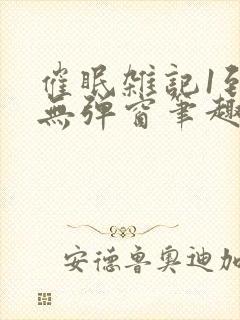 催眠雑記1至
無弹窗筆趣
安德魯奥迪加